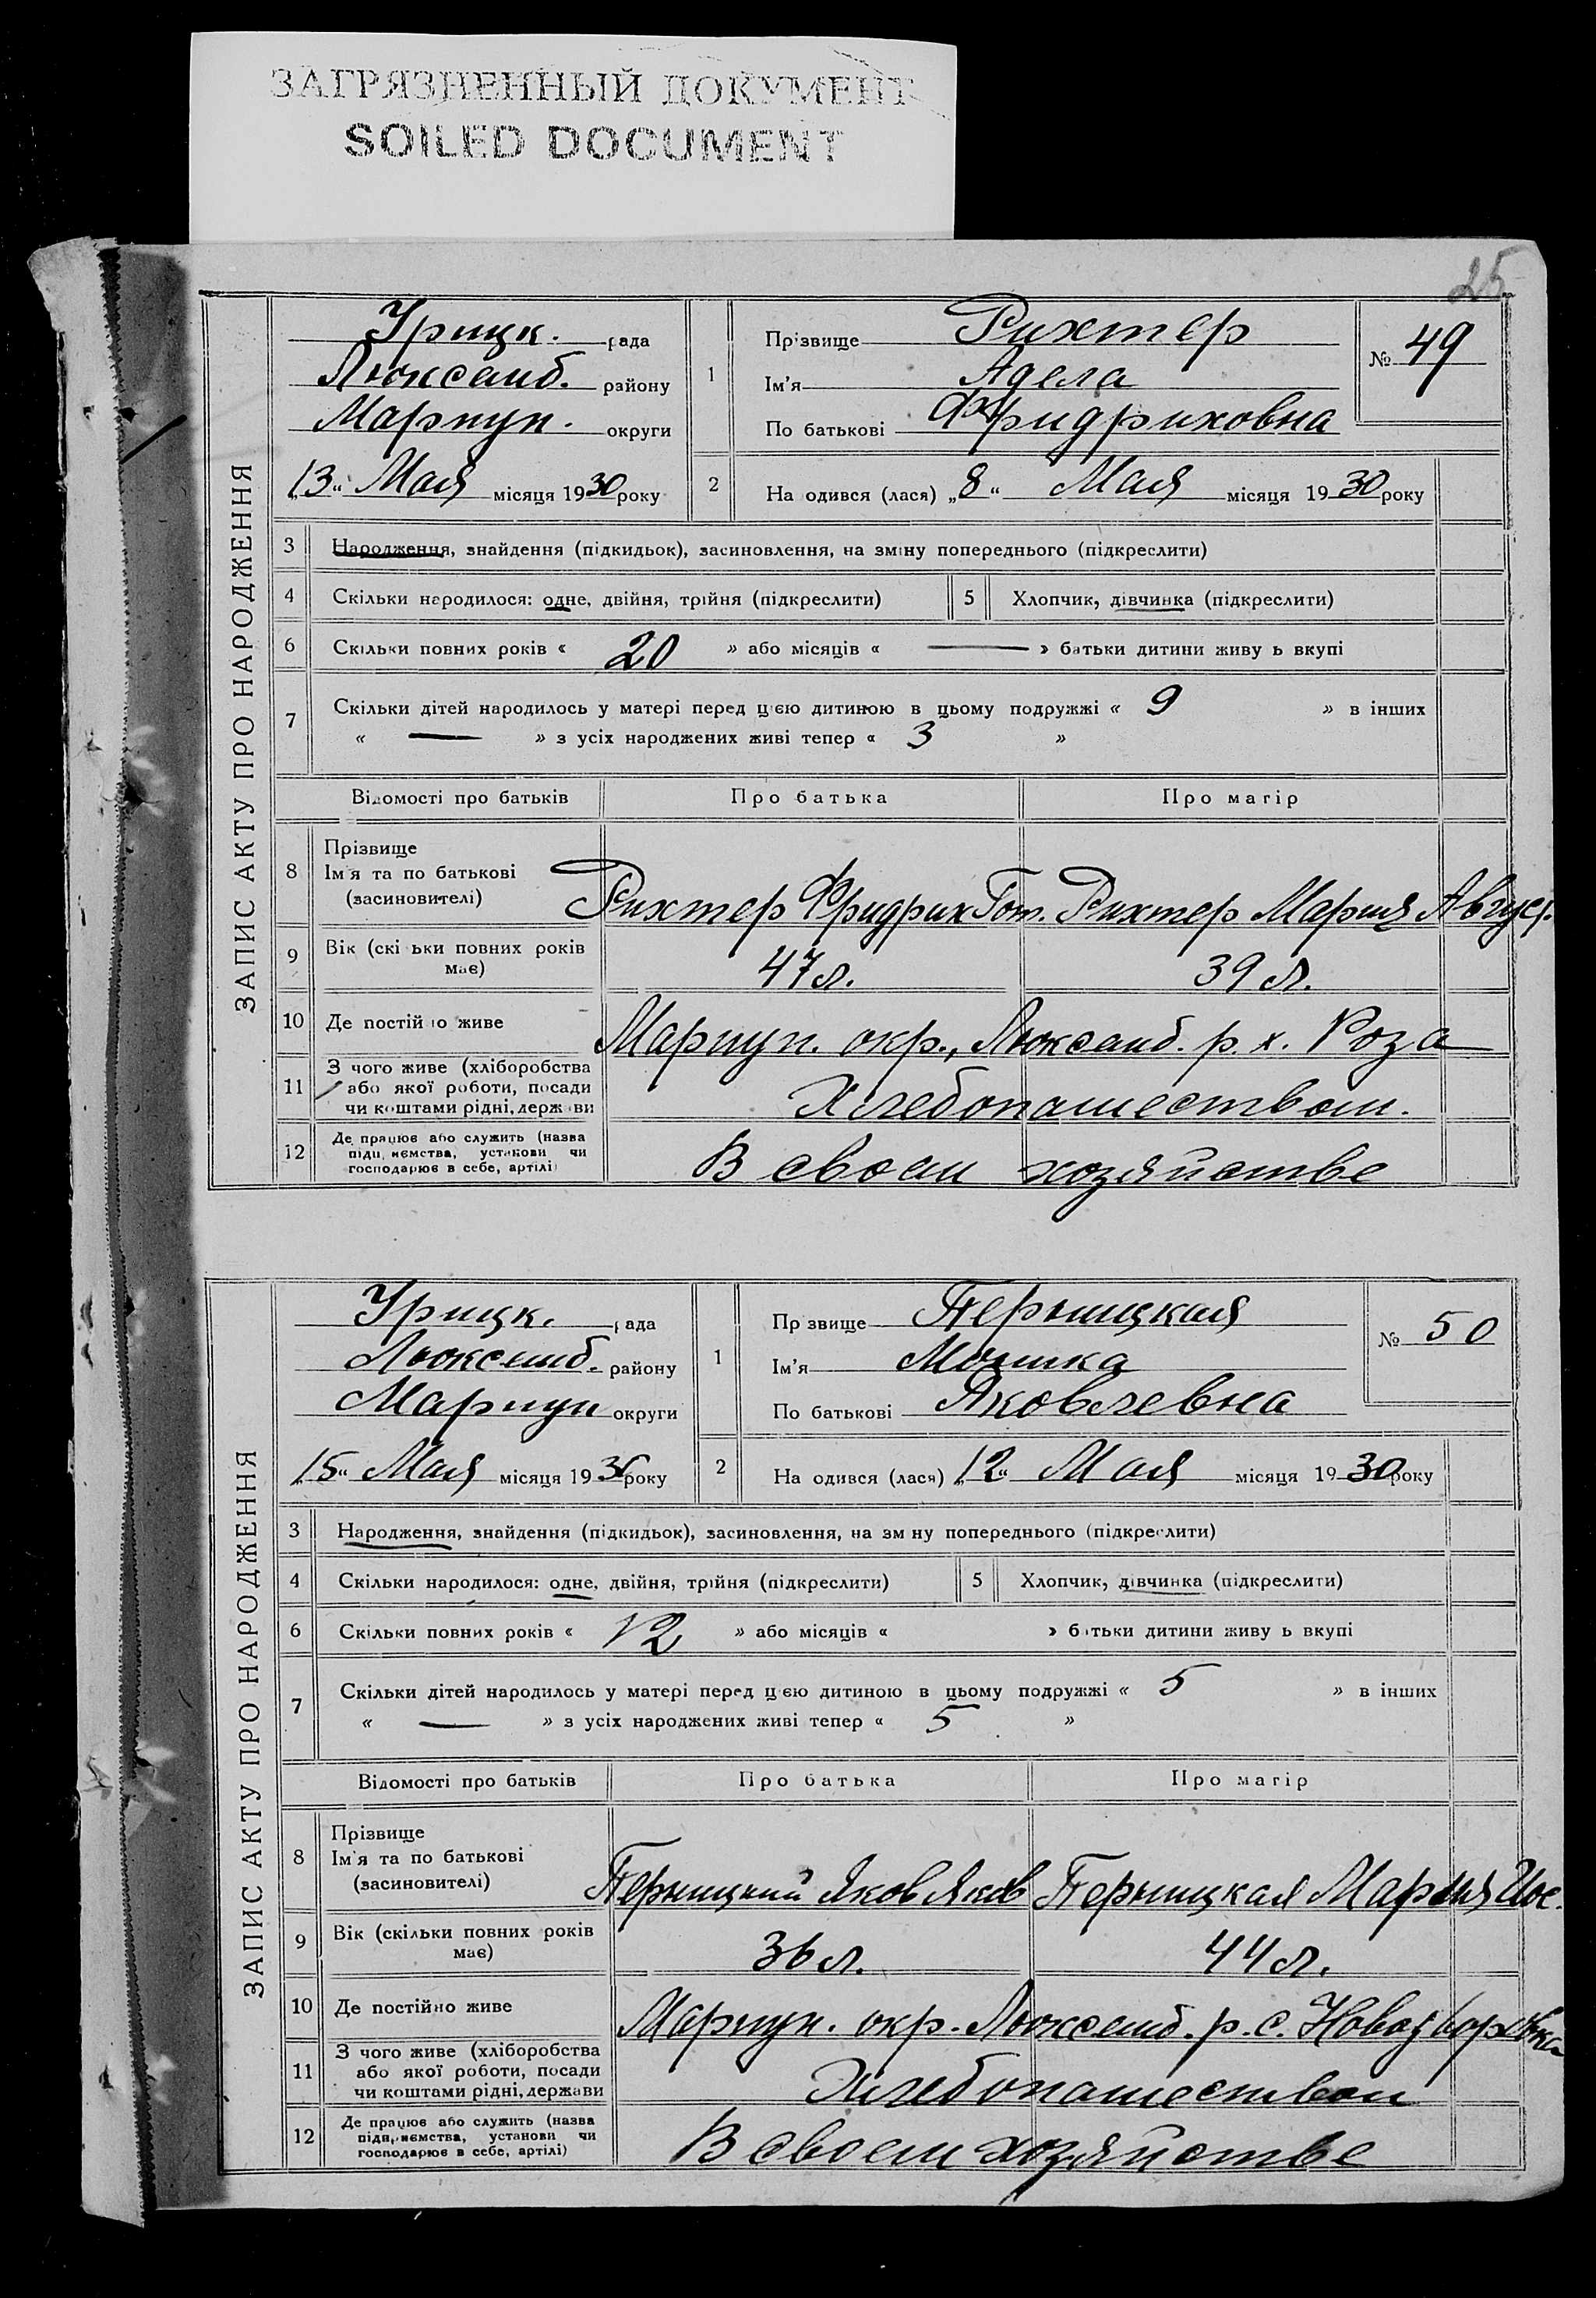 ЗАГРЯЗНЕННЫЙ ДОКУМЕНТ
SOILED DOCUMENT
25
ЗАПИС АКТУ ПРО НАРОДЖЕННЯ
Урицк. рада
Люксемб. району
Мариуп. округи
„13“ Мая місяця 1930 року
1
Прізвище Рихтер
Ім'я Адела
По батькові Фридриховна
№ 49
2
На одився (лася) „8“ Мая місяця 1930 року
3 Народження, знайдення (підкидьок), засиновлення, на зміну попереднього (підкреслити)
4 Скільки народилося: одне, двійня, трійня (підкреслити) 5 Хлопчик, дівчинка (підкреслити)
6 Скільки повних років « 20 » або місяців « — » батьки дитини живу ь вкупі
7 Скільки дітей народилось у матері перед цією дитиною в цьому подружжі « 9 » в інших
« — » з усіх народжених живі тепер « 3 »
Відомості про батьків Про батька Про матір
8 Прізвище
Ім'я та по батькові
(засиновителі)
Рихтер Фридрих Гот. Рихтер Мария Август.
9 Вік (скі ьки повних років
має)
47 л. 39 л.
10 Де постійно живе Мариуп. окр., Люксемб. р. х. Роза
11 З чого живе (хліборобства
або якої роботи, посади
чи коштами рідні, держави
Хлебопашеством.
12 Де працює або служить (назва
підприємства, установи чи
господарює в себе, артілі)
В своем хозяйстве
ЗАПИС АКТУ ПРО НАРОДЖЕННЯ
Урицк. рада
Люксемб. району
Мариуп округи
„15“ Мая місяця 1930 року
1
Пр звище
Ім'я
По батькові Яковлевна
№ 50
2
На одився (лася) „12“ Мая місяця 1930 року
3 Народження, знайдення (підкидьок), засиновлення, на зм ну попереднього (підкреслити)
4 Скільки народилося: одне, двійня, трійня (підкреслити) 5 Хлопчик, дівчинка (підкреслити)
6 Скільки повних років « 12 » або місяців « » батьки дитини живу ь вкупі
7 Скільки дітей народилось у матері перед цією дитиною в цьому подружжі « 5 » в інших
« — » з усіх народжених живі тепер « 5 »
Відомості про батьків Про батька Про матір
8 Прізвище
Ім'я та по батькові
(засиновителі)
Яков Яков Мария Иос.
9 Вік (скільки повних років
має)
36 л. 44 л.
10 Де постійно живе Мариуп. окр. Люксемб. р. с.
11 З чого живе (хліборобства
або якої роботи, посади
чи коштами рідні, держави
Хлебопашеством
12 Де працює або служить (назва
підприємства, установи чи
господарює в себе, артілі)
В своем хозяйстве